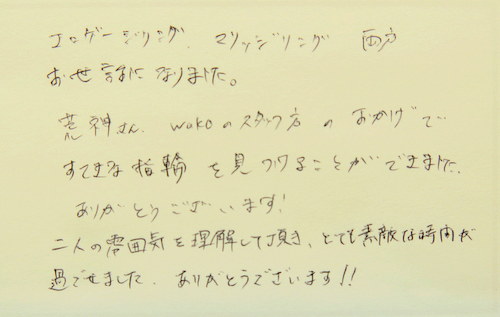 エンゲージリング、マリッジリング 両方
お世話になりました。
荒神さん、wakoのスタッフ方のおかげで
すてきな指輪を見つけることができました。
ありがとうございます!
二人の雰囲気を理解して頂き、とても素敵な時間が
過ごせました。ありがとうございます!!